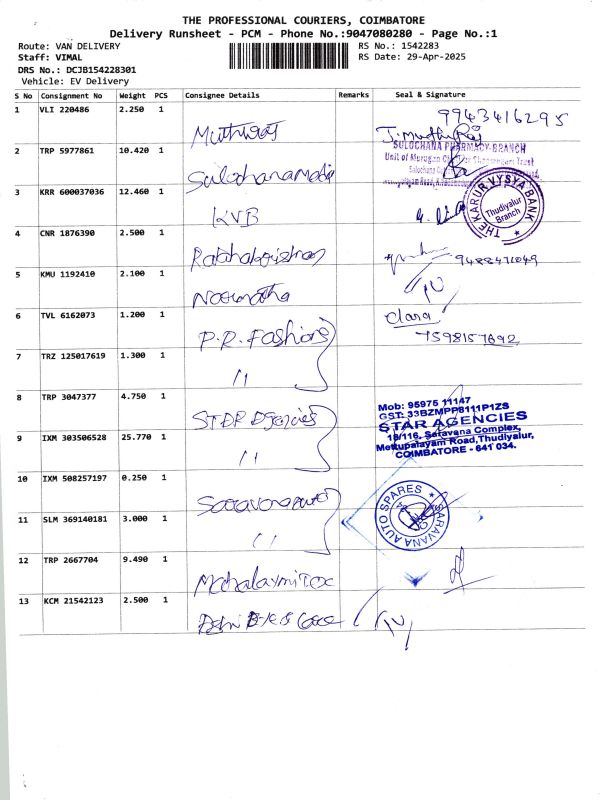 THE PROFESSIONAL COURIERS, COIMBATORE
Delivery Runsheet - PCM - Phone No.:9047080280 - Page No.:1
Route: VAN DELIVERY
RS No.: 1542283
Staff: VIMAL
RS Date: 29-Apr-2025
DRS No.: DCJB154228301
Vehicle: EV Delivery
S No Consignment No Weight PCS Consignee Details Remarks Seal & Signature
1 VLI 220486 2.250 1 Muthuraj 9943416295
2 TRP 5977861 10.420 1 SULOCHANA PHARMACY-BRANCH
3 KRR 600037036 12.460 1 KVB THE KARUR VYSYA BANK Thudiyalur Branch
4 CNR 1876390 2.500 1 Radhakrishnan
5 KMU 1192410 2.100 1
6 TVL 6162073 1.200 1 P.R. Fashions Clara 7598157692
7 TRZ 125017619 1.300 1 "
8 TRP 3047377 4.750 1 STAR Agencies
Mob: 95975 11147
GST: 33BZMPP8111P1ZS
STAR AGENCIES
18/116, Saravana Complex,
Mettupalayam Road,Thudiyalur,
COIMBATORE - 641 034.
9 IXM 303506528 25.770 1 "
10 IXM 508257197 0.250 1 SARAVANA AUTO SPARES
11 SLM 369140181 3.000 1 "
12 TRP 2667704 9.490 1
13 KCM 21542123 2.500 1